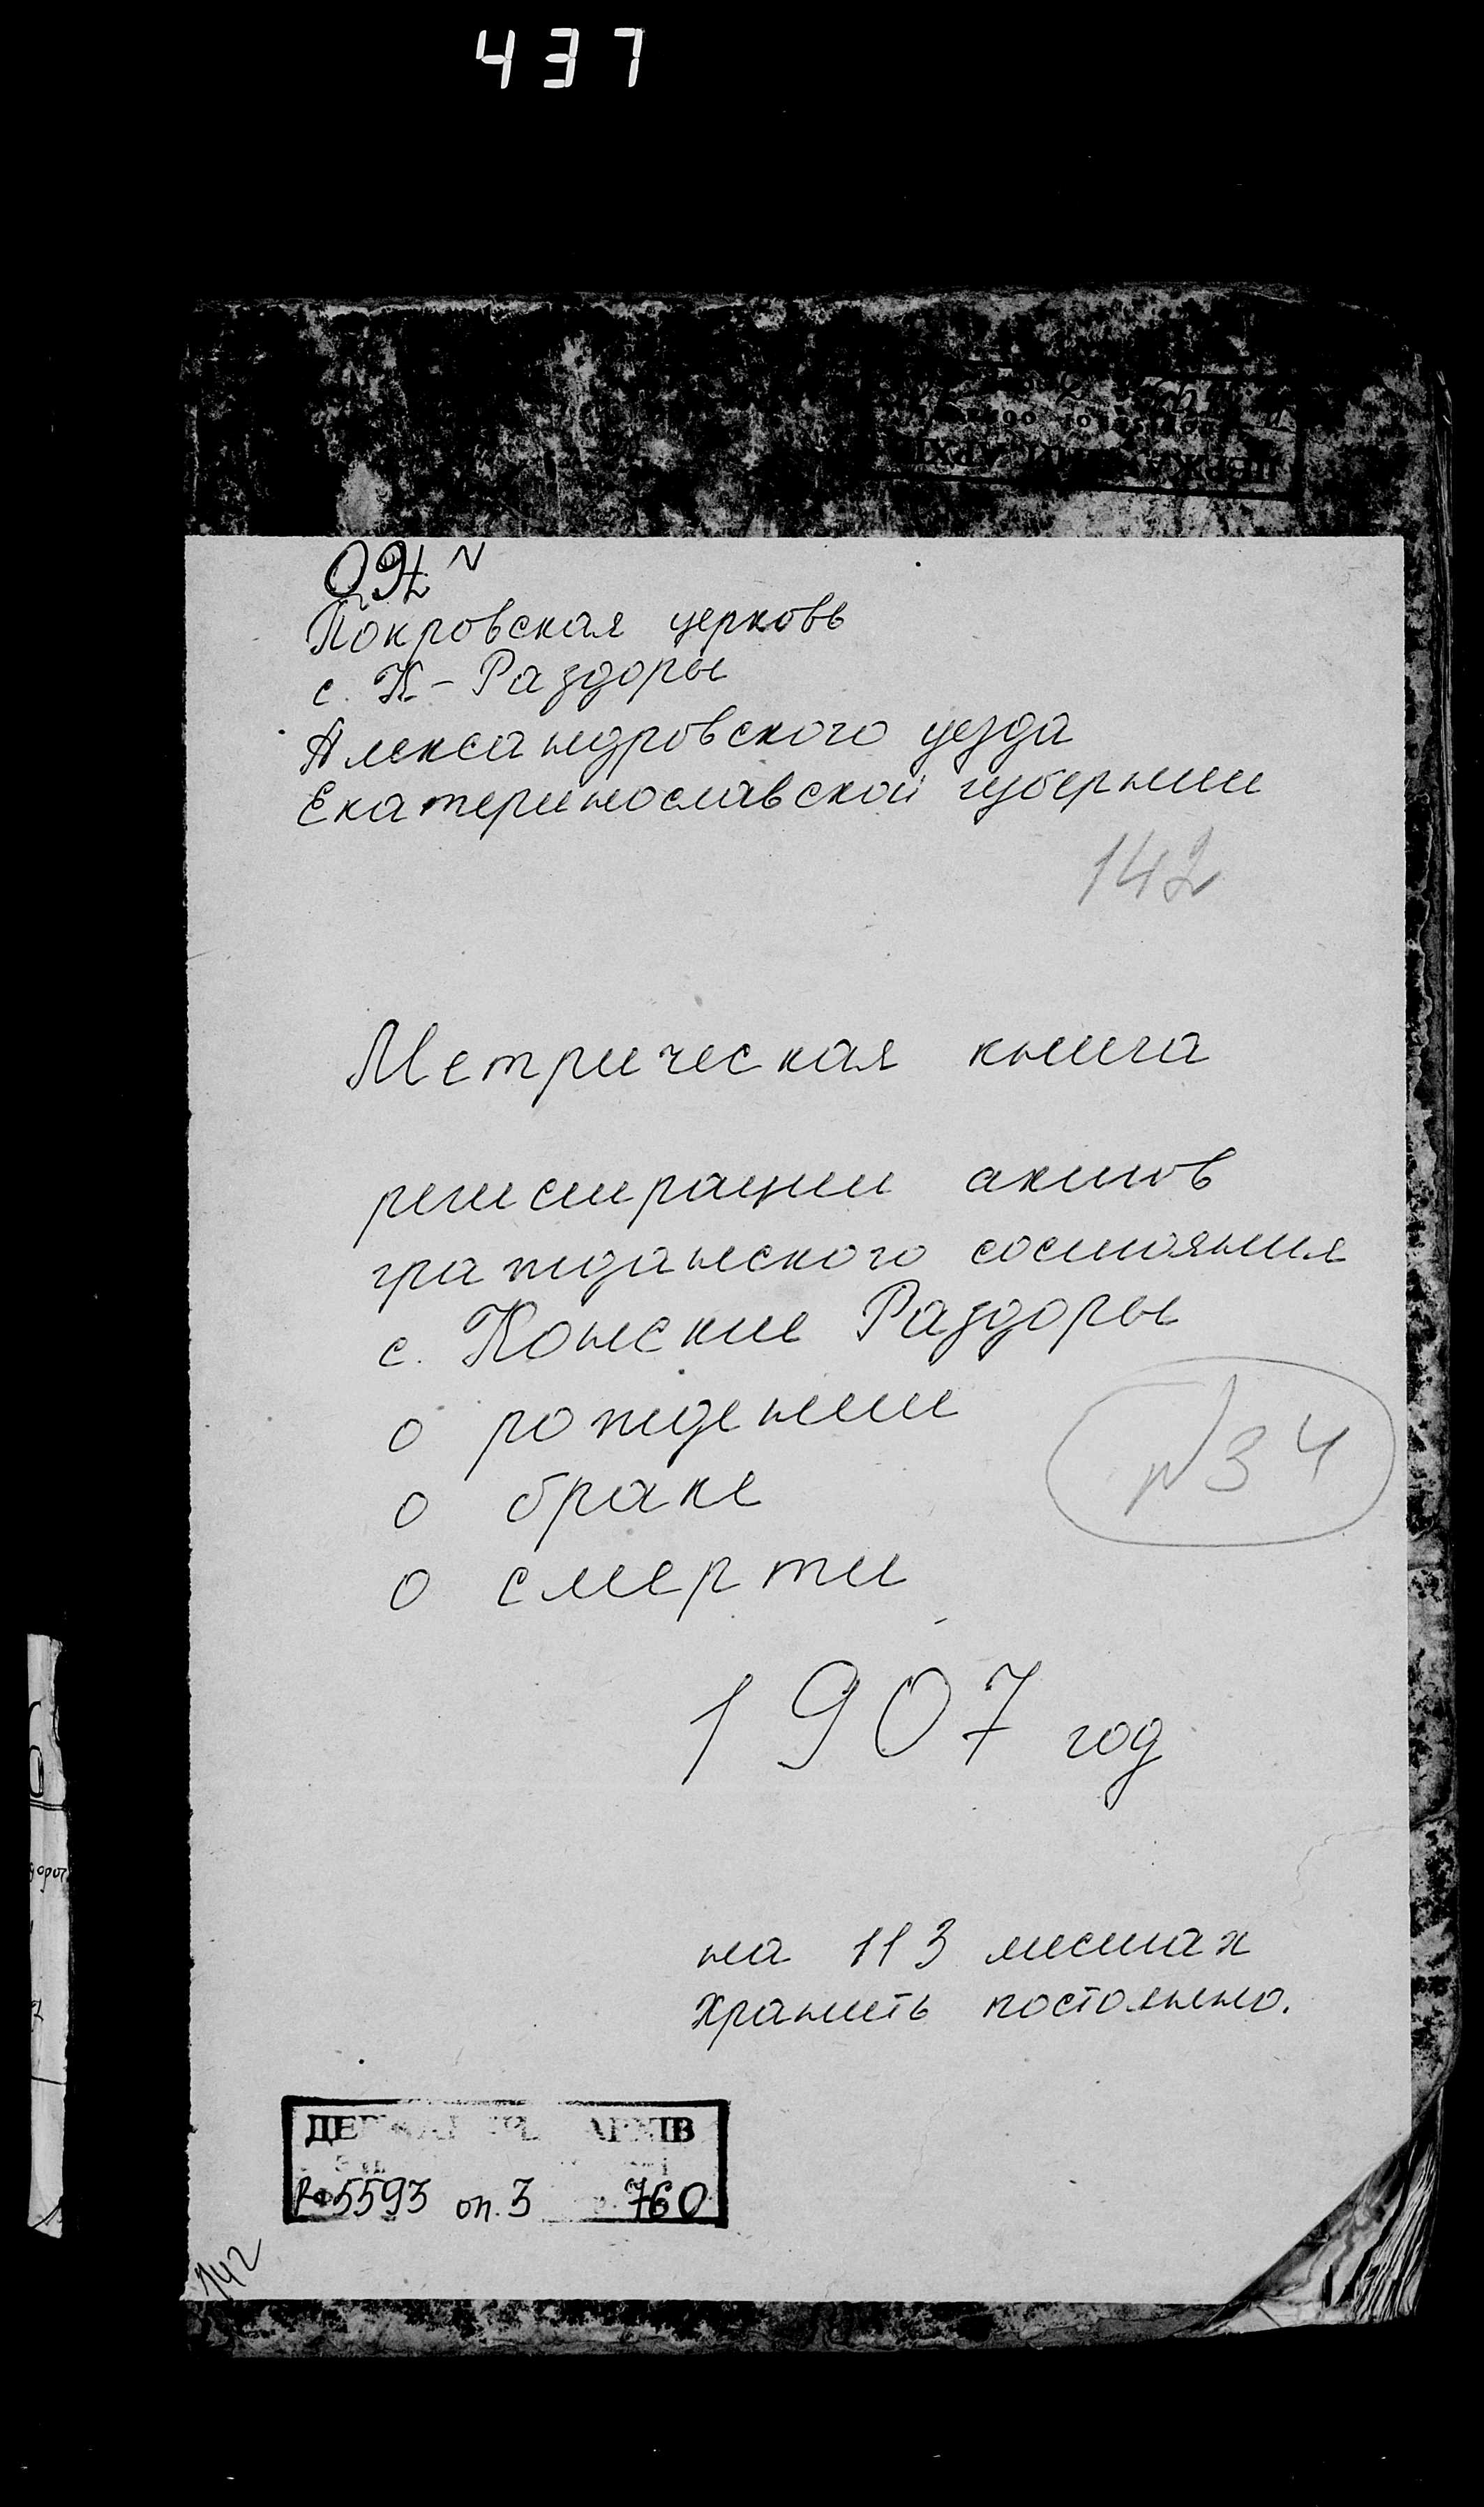 437
Покровская церковь
с. К-Раздоры
Александровского уезда
Екатеринославской губернии
142
Метрическая книга
регистрации актов
гражданского состояния
с. Конские Раздоры
о рождении
о браке
о смерти
№34
1907 год
на 113 листах
хранить постоянно.
АРХІВ
Рф5593 оп.3 760
142